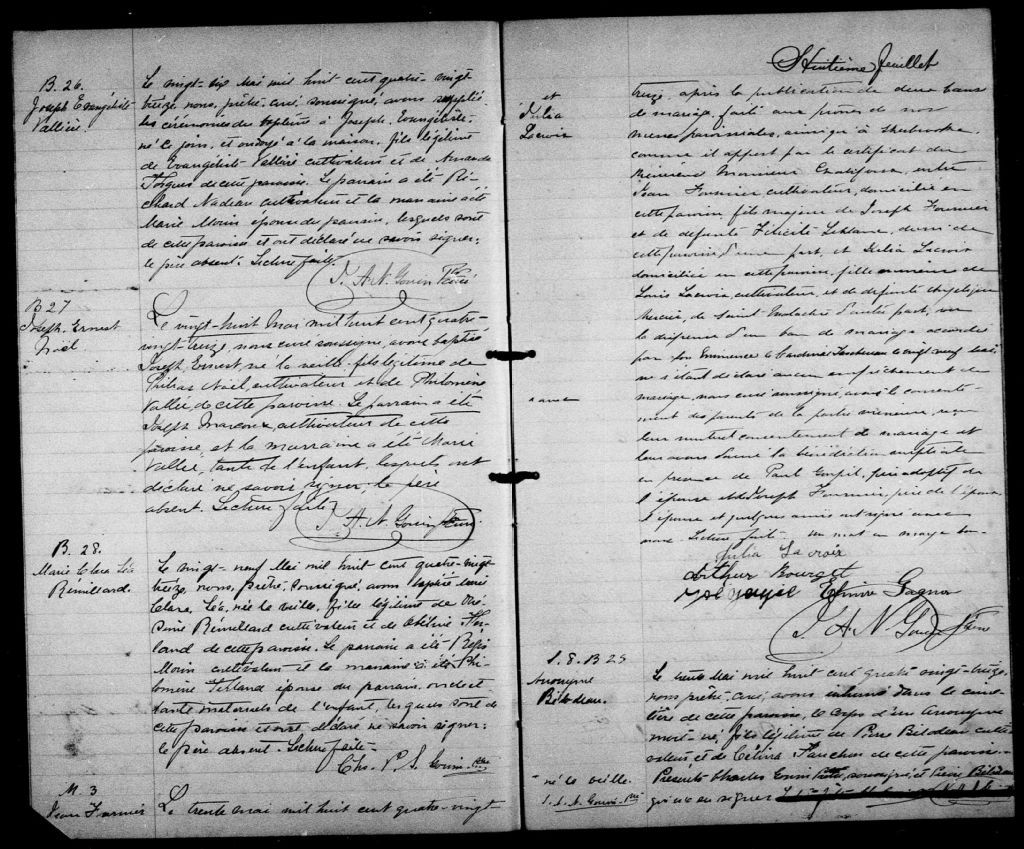 B. 26.
Joseph Evangéliste
Vallière.
Le vingt-six Mai mil huit cent quatre-vingt
treize, nous, prêtre, curé soussigné, avons suppléé
les cérémonies du baptême à Joseph, Evangéliste,
né ce jour, et ondoyé à la maison, fils légitime
de Evangéliste Vallière cultivateur et de
de cette paroisse. Le parrain a été
Nadeau cultivateur et la marraine a été
Marie Morin épouse du parrain, lesquels sont
de cette paroisse et ont déclaré ne savoir signer;
le père absent. Lecture faite.
J. A. N. Gouin Ptre Curé
B 27
Joseph-Ernest
Noël.
Le vingt-huit Mai mil huit cent quatre-
vingt-treize, nous curé soussigné, avons baptisé
Joseph Ernest né la veille, fils légitime de
Philias Noël, cultivateur et de Philomène
Vallée, de cette paroisse. Le parrain a été
Joseph Marcoux, cultivateur de cette
paroisse, et la marraine a été Marie
Vallée, tante de l'enfant, lesquels ont
déclaré ne savoir signer, le père
absent. Lecture faite
J. A. N. Gouin Ptre
B. 28.
Marie Clara Léa
Rémillard.
Le vingt-neuf Mai mil huit cent quatre-vingt
treize, nous, prêtre, soussigné, avons baptisé Marie
Clara, Léa, née la veille, fille légitime de
Rémillard cultivateur et de
de cette paroisse. Le parrain a été Régis
Morin cultivateur et la marraine a été Phi-
lomène épouse du parrain, oncle et
tante maternels de l'enfant, lesquels sont de
cette paroisse et ont déclaré ne savoir signer;
le père absent. Lecture faite.
Chs. P. S. Gouin Ptre
M. 3
Jean Fournier
Le trente mai mil huit cent quatre-vingt
Huitième feuillet
et
Julia
Lacroix
treize, après la publication de deux bans
de mariage, faite aux prônes de nos
messes paroissiales, ainsi qu'à Sherbrooke,
comme il appert par le certificat du
Révérend Monsieur entre
Jean Fournier cultivateur, domicilié en
cette paroisse, fils majeur de Joseph Fournier
et de défunte Félicité Leblanc, aussi de
cette paroisse d'une part, et Julia Lacroix
domiciliée en cette paroisse, fille mineure de
Louis Lacroix, cultivateur, et de défunte Angélique
Mercier, de Saint d'autre part, vu
la dispense d'un ban de mariage accordée
par Son Eminence le Cardinal Taschereau le vingt neuf
ne s'étant déclaré aucun empêchement de
mariage, nous curé soussigné, avec le consente-
ment des parents de la partie mineure, reçu
leur mutuel consentement de mariage et
leur avons donné la bénédiction nuptiale
en présence de Paul père adoptif de
l'épouse et de Joseph Fournier, père de l'époux,
l'épouse et quelques amis ont signé avec
nous. Lecture faite. Un mot en marge bon.
Julia Lacroix
Arthur Bourget
Gagnon
J. A. N. Gouin Ptre
S. 8. B 29
Anonyme
Bilodeau.
né la veille.
J. A. N. Gouin Ptre
Le trente Mai mil huit cent quatre-vingt-treize,
nous prêtre, curé, avons inhumé dans le cime-
tière de cette paroisse, le corps d'un Anonyme
mort-né fils légitime de Pierre Bilodeau culti-
vateur et de Célina de cette paroisse.
Présents Charles Gouin Ptre, soussigné et Pierre Bilodeau
qui n'a su signer